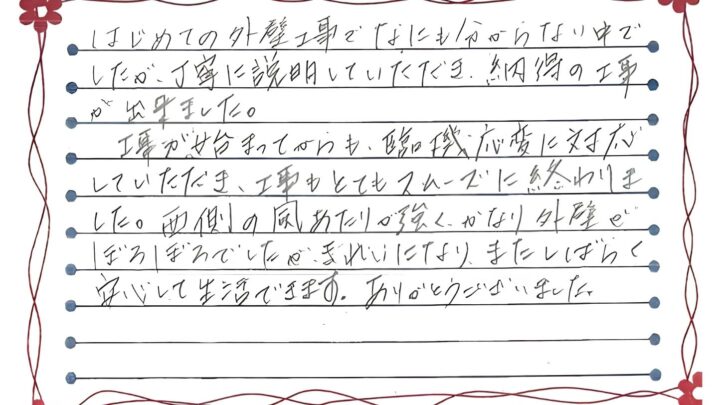 はじめての外壁工事でなにも分からない中で
したが、丁寧に説明していただき、納得の工事
が出来ました。
工事が始まってからも、臨機応変に対応
していただき、工事もとてもスムーズに終わりま
した。西側の風あたりが強く、かなり外壁が
ぼろぼろでしたが、きれいになり、またしばらく
安心して生活できます。ありがとうございました。